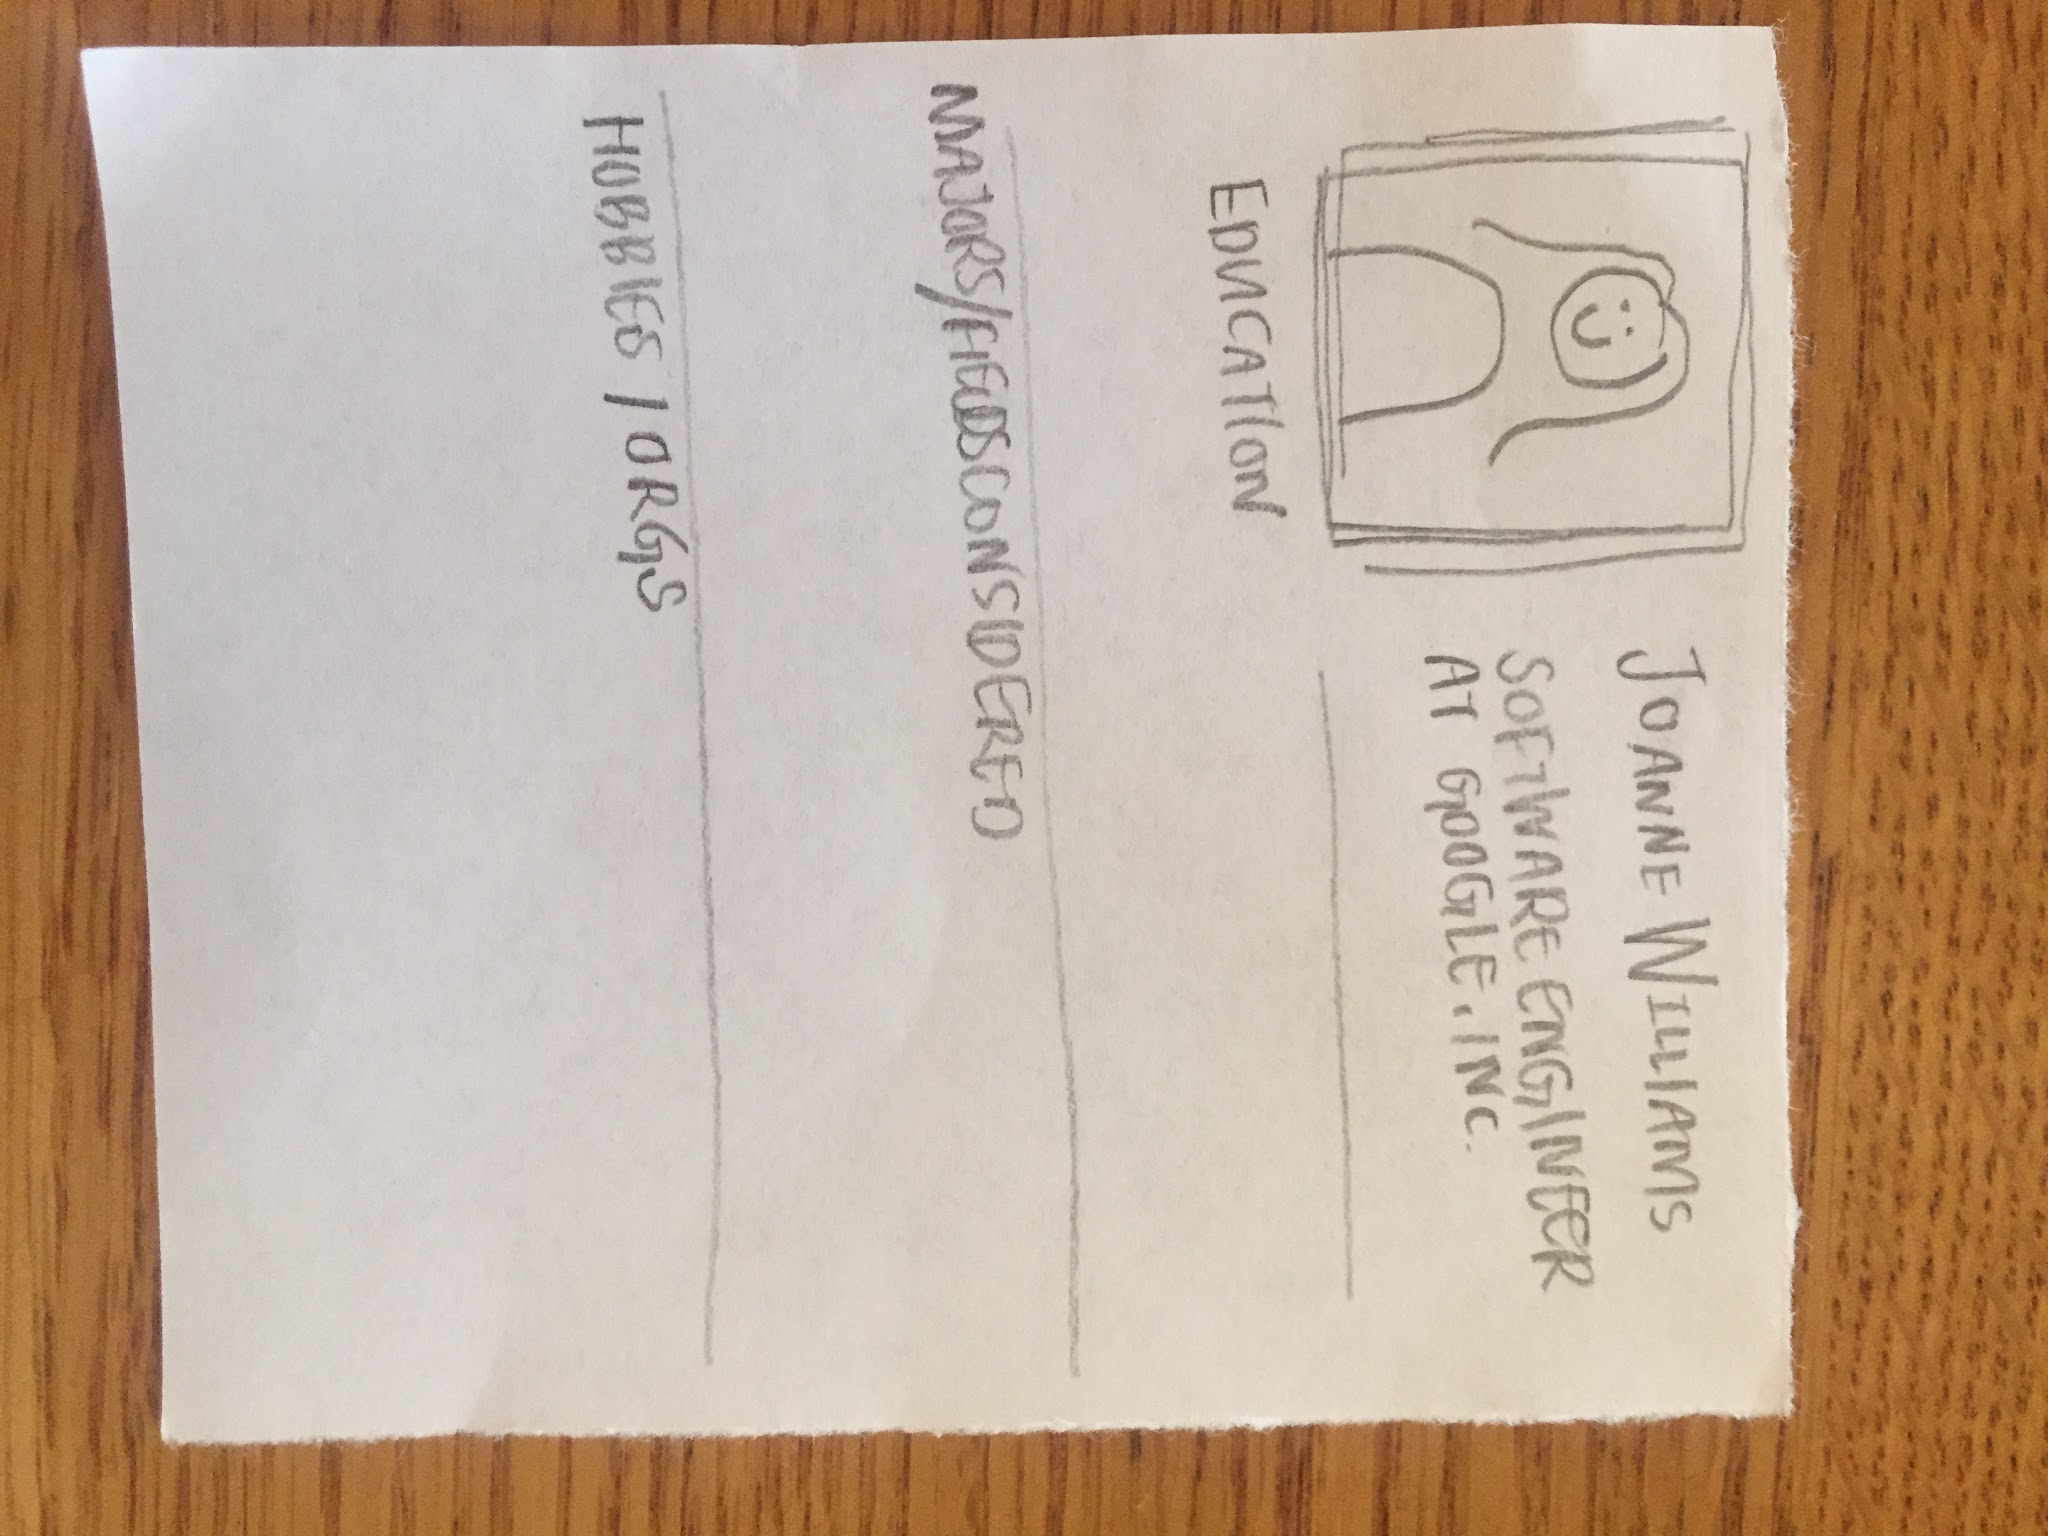 JOANNE WILLIAMS
SOFTWARE ENGINEER
AT GOOGLE, INC.
EDUCATION
MAJORS/FIELDS CONSIDERED
HOBBIES / ORGS